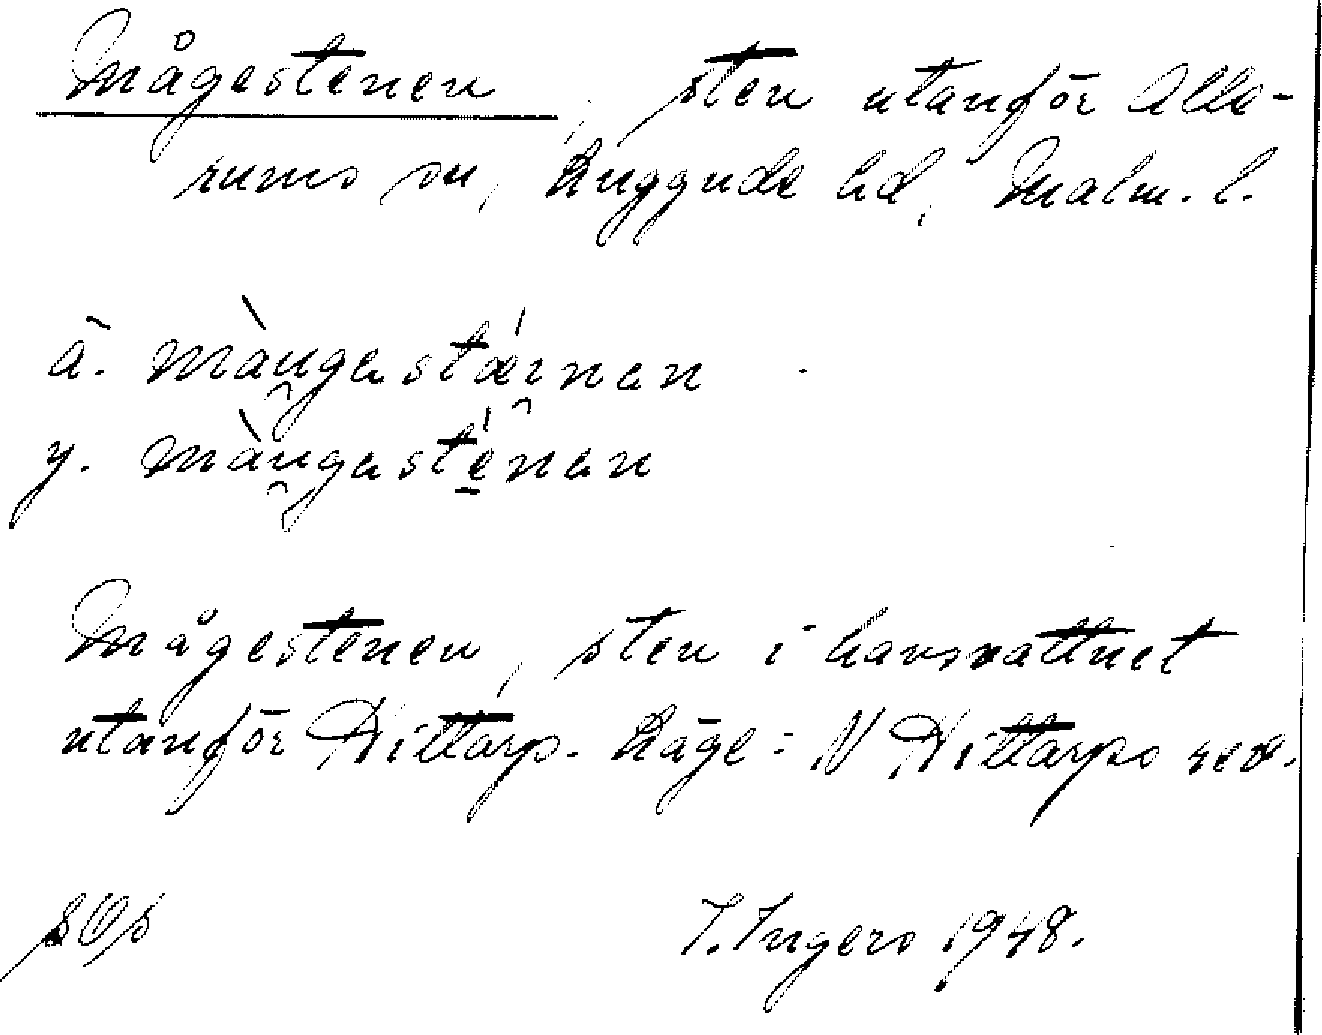 Mågestenen, sten utanför Alle-
rums sn, Luggude hd, Malm. l.
ä. màu̯gastǽrnan
y. màu̯gasté̱nan
Mågestenen, sten i havsvattnet
utanför Hittarp. Läge: N Hittarps rev.
SOS I. Ingers 1948.